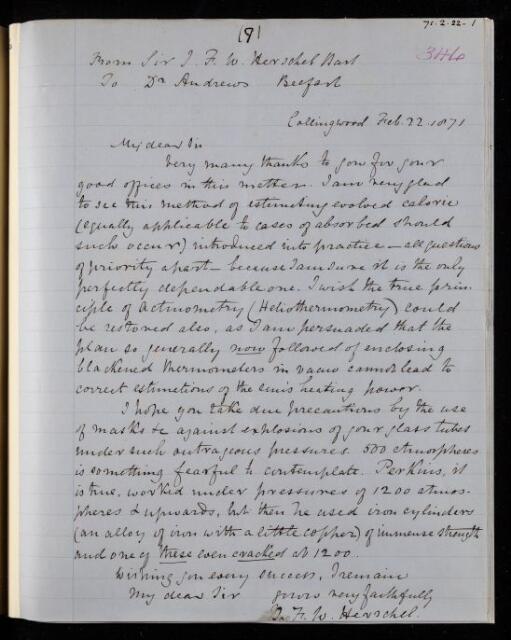 (9)
71.2.22-1
346
From Sir J. F. W. Herschel Bart
To Dr Andrews Belfast
Collingwood Feb. 22. 1871
My dear Sir
Very many thanks to you for your
good offices in this matter. I am very glad
to see this method of estimating evolved caloric
(equally applicable to cases of absorbed should
such occur) introduced into practice - all questions
of priority apart - because I am sure it is the only
perfectly dependable one. I wish the true prin-
ciple of Actinometry (Heliothermometry) could
be restored also, as I am persuaded that the
plan so generally now followed of enclosing
blackened thermometers in vacuo cannot lead to
correct estimations of the sun's heating power.
I hope you take due precautions by the use
of masks &c against explosions of your glass tubes
under such outrageous pressures. 500 atmospheres
is something fearful to contemplate. Perkins, it
is true, worked under pressures of 1200 atmos-
pheres & upwards, but then he used iron cylinders
(an alloy of iron with a little copper) of immense strength
and one of these even cracked at 1200.
Wishing you every success, I remain
My dear Sir yours very faithfully
J. F. W. Herschel.